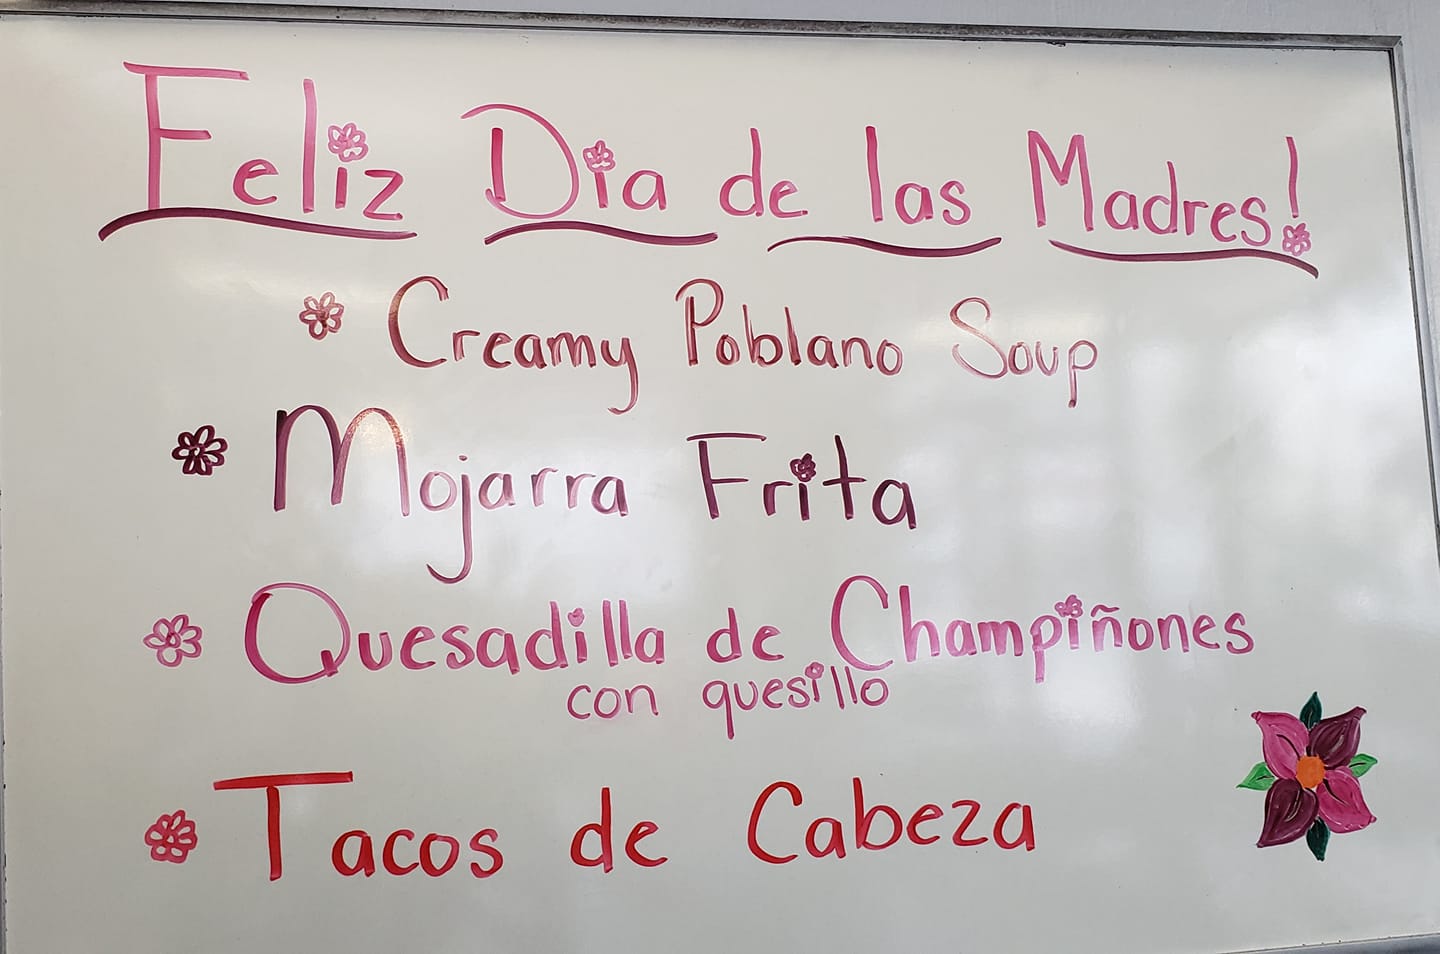 Feliz Dia de las Madres!
Creamy Poblano Soup
Mojarra Frita
Quesadilla de Champiñones
con quesillo
Tacos de Cabeza